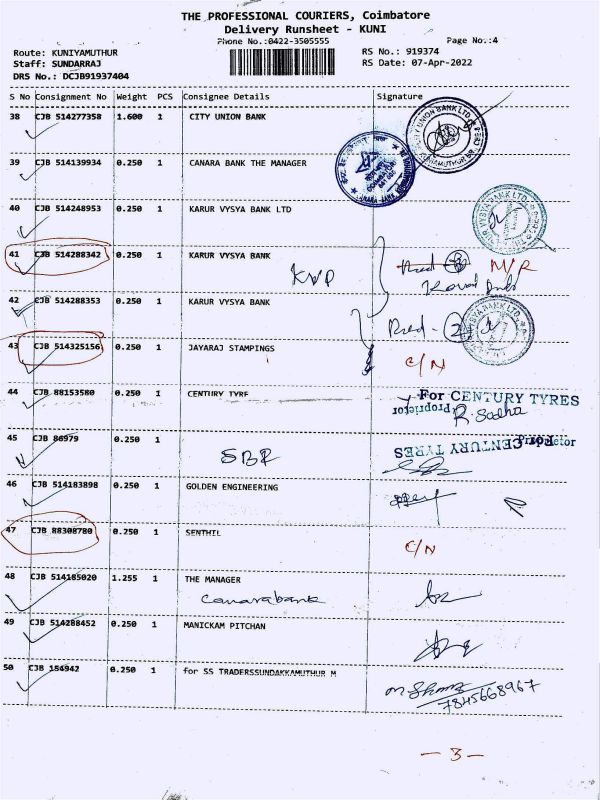 THE PROFESSIONAL COURIERS, Coimbatore
Delivery Runsheet - KUNI
Phone No.:0422-3505555
Page No.:4
Route: KUNIYAMUTHUR
RS No.: 919374
Staff: SUNDARRAJ
RS Date: 07-Apr-2022
DRS No.: DCJB91937404
S No Consignment No Weight PCS Consignee Details Signature
38 CJB 514277358 1.600 1 CITY UNION BANK
39 CJB 514139934 0.250 1 CANARA BANK THE MANAGER
40 CJB 514248953 0.250 1 KARUR VYSYA BANK LTD
41 CJB 514288342 0.250 1 KARUR VYSYA BANK M/R
KVP
42 CJB 514288353 0.250 1 KARUR VYSYA BANK
Recd - 2
43 CJB 514325156 0.250 1 JAYARAJ STAMPINGS C/N
44 CJB 88153580 0.250 1 CENTURY TYRE For CENTURY TYRES
Proprietor
R. Sadha
45 CJB 86979 0.250 1 For CENTURY TYRES
Proprietor
SBR
46 CJB 514183898 0.250 1 GOLDEN ENGINEERING
47 CJB 88308780 0.250 1 SENTHIL C/N
48 CJB 514185020 1.255 1 THE MANAGER
Canarabank
49 CJB 514288452 0.250 1 MANICKAM PITCHAN
50 CJB 154942 0.250 1 for SS TRADERSSUNDAKKAMUTHUR M
7845668967
- 3 -